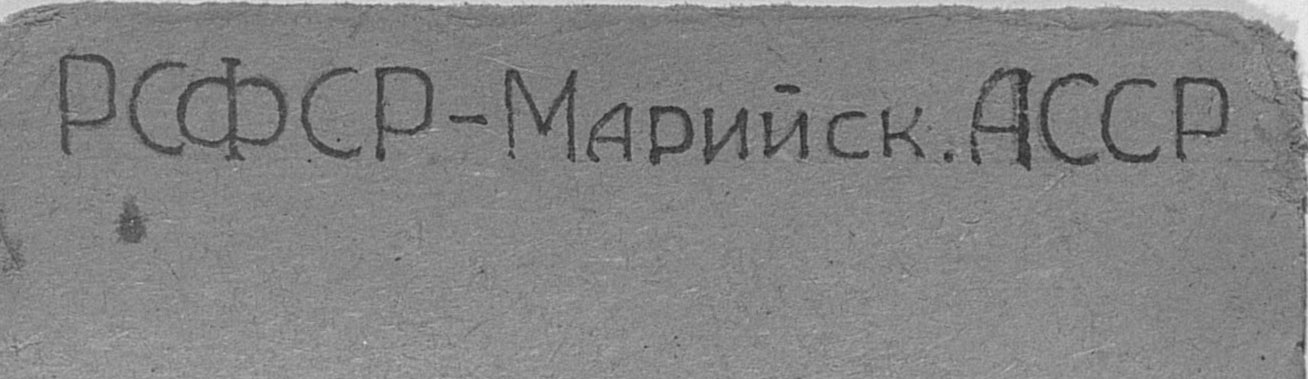 РСФСР-Марийск.АССР